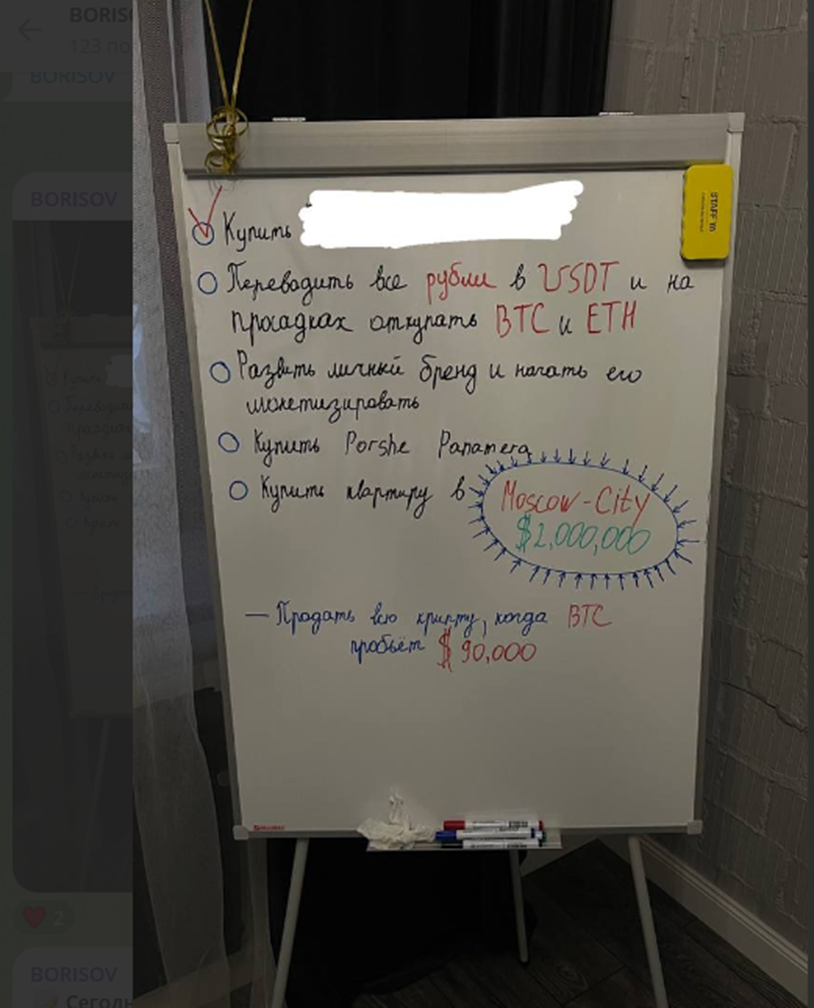 BORIS
123 по
BORISOV
BORISOV
Купить
Переводить все рубли в USDT и на
просадках откупать BTC и ETH
Развить личный бренд и начать его
монетизировать
Купить Porshe Panamera
Купить квартиру в Moscow-City
$2,000,000
— Продать всю крипту, когда BTC
пробьёт $90,000
STAFF
2
BORISOV
Сегодн